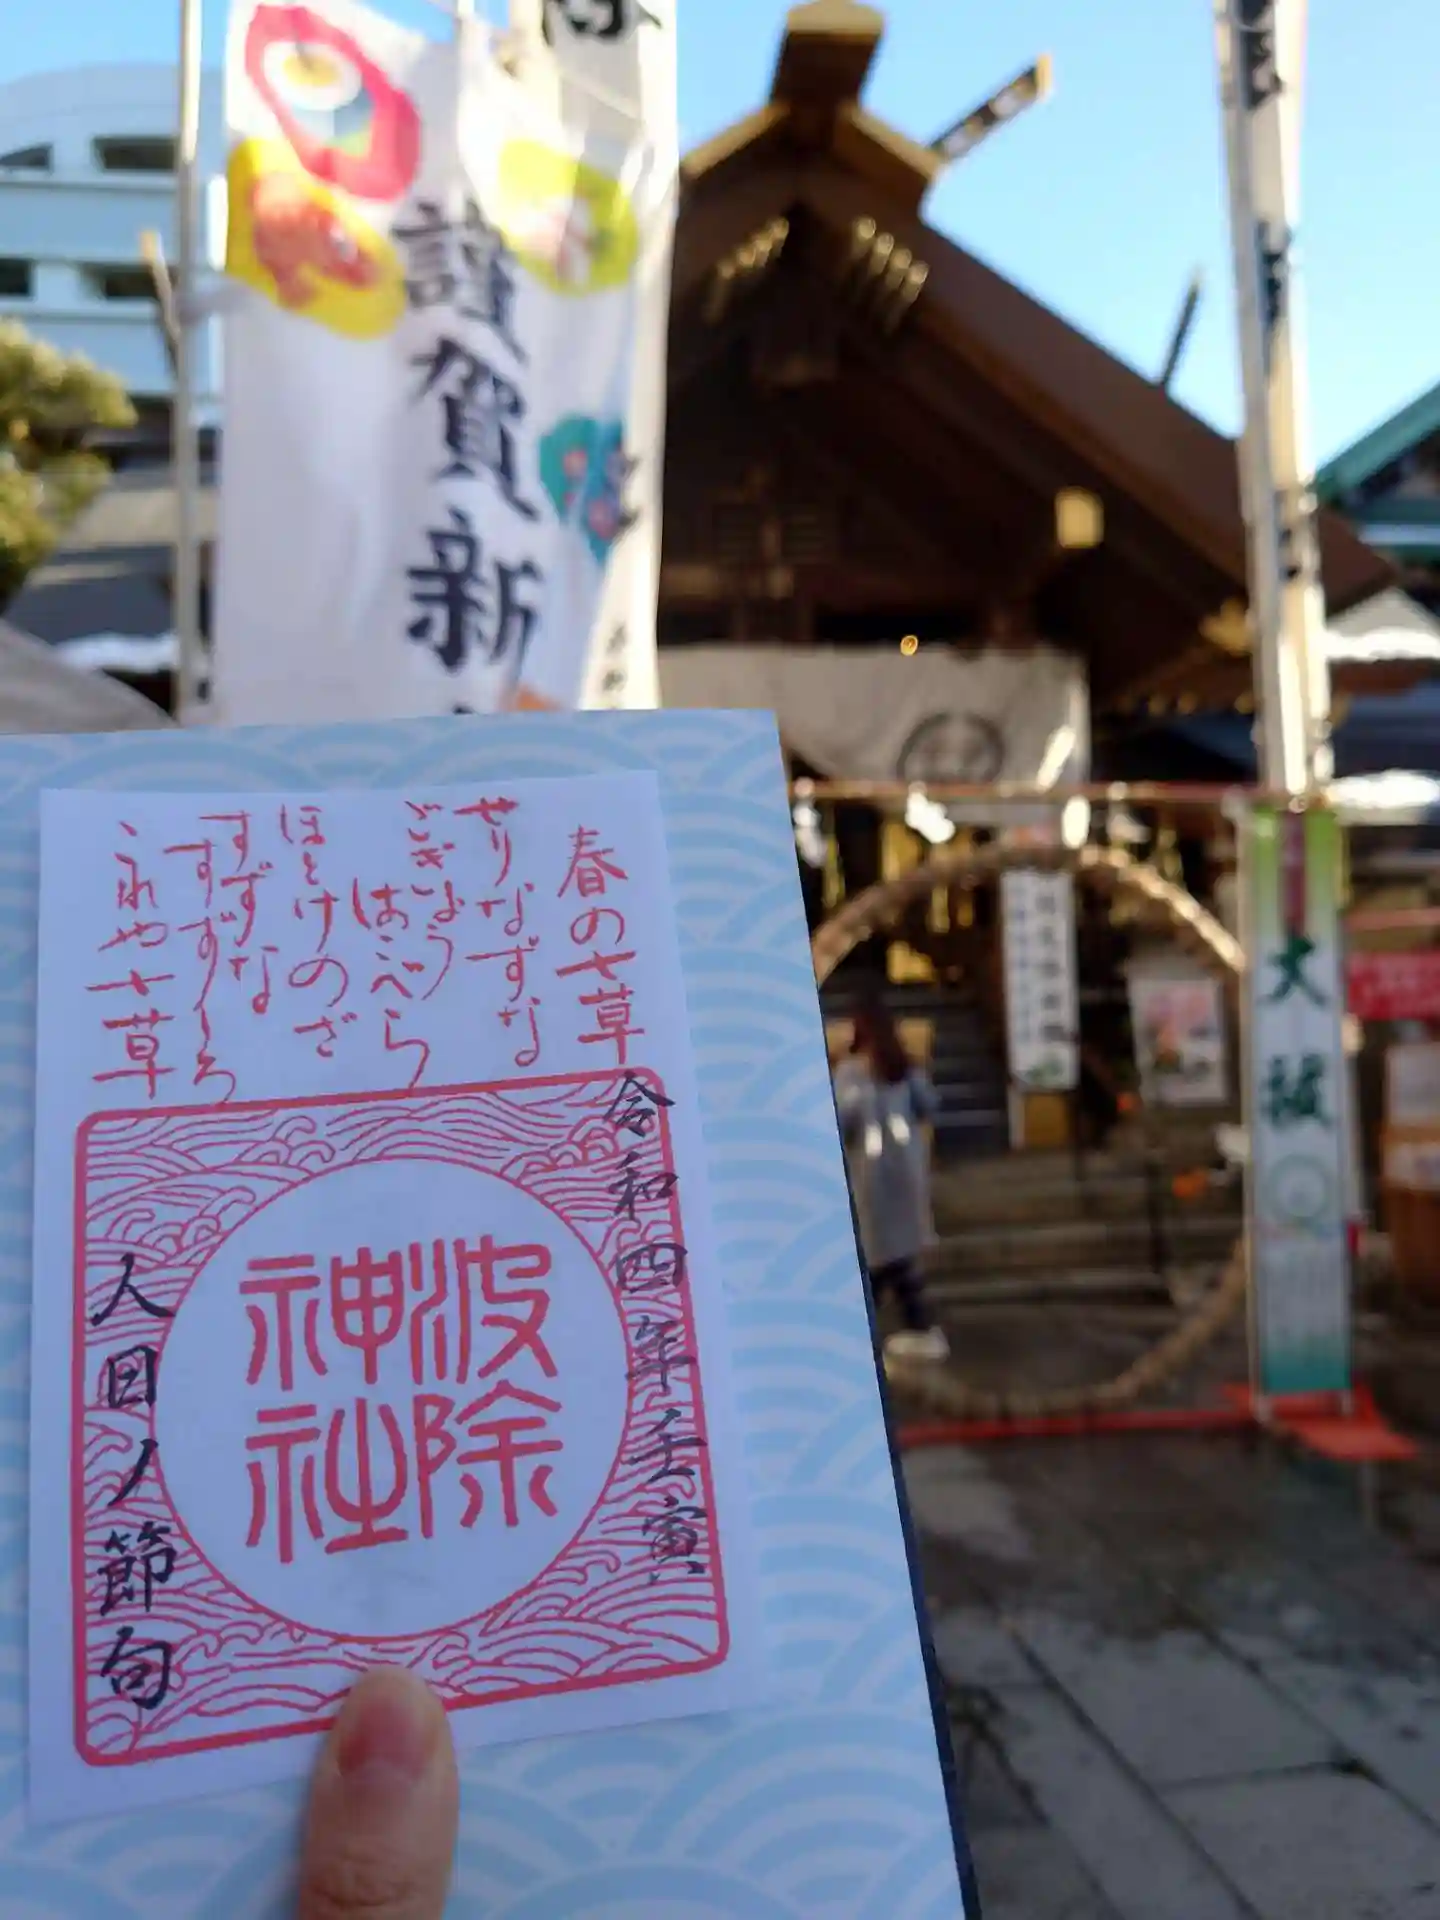 謹賀新
大祓
春の七草
せりなずな
ごぎょう
はこべら
ほとけのざ
すずな
すずしろ
これや七草
令和四年壬寅
波除
神社
人日ノ節句